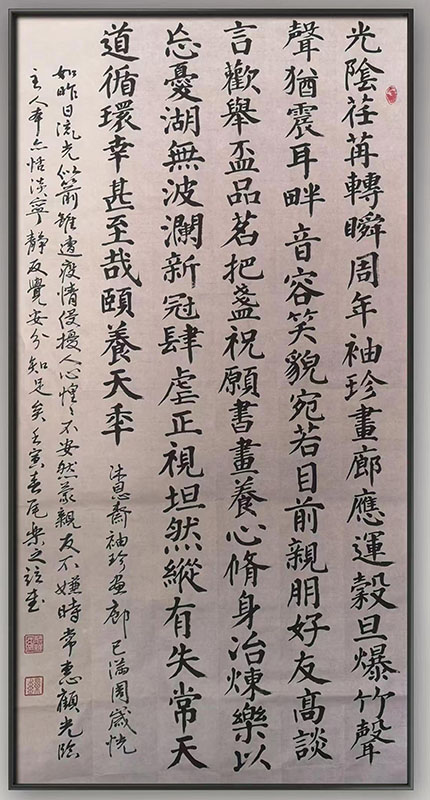 光陰荏苒轉瞬周年袖珍畫廊應運穀旦爆竹聲
聲猶震耳畔音容笑貌宛若目前親朋好友高談
言歡舉盃品茗把盞祝願書畫養心脩身冶煉樂以
忘憂湖無波瀾新冠肆虐正視坦然縱有失常天
道循環幸甚至哉頤養天年
沐恩齋袖珍畫廊已滿周歲恍
如昨日流光似箭雖遭疫情侵擾人心惶〻不安然蒙親友不嫌時常惠顧光臨
主人本亦恬淡寧靜反覺安分知足矣壬寅春尾樂之